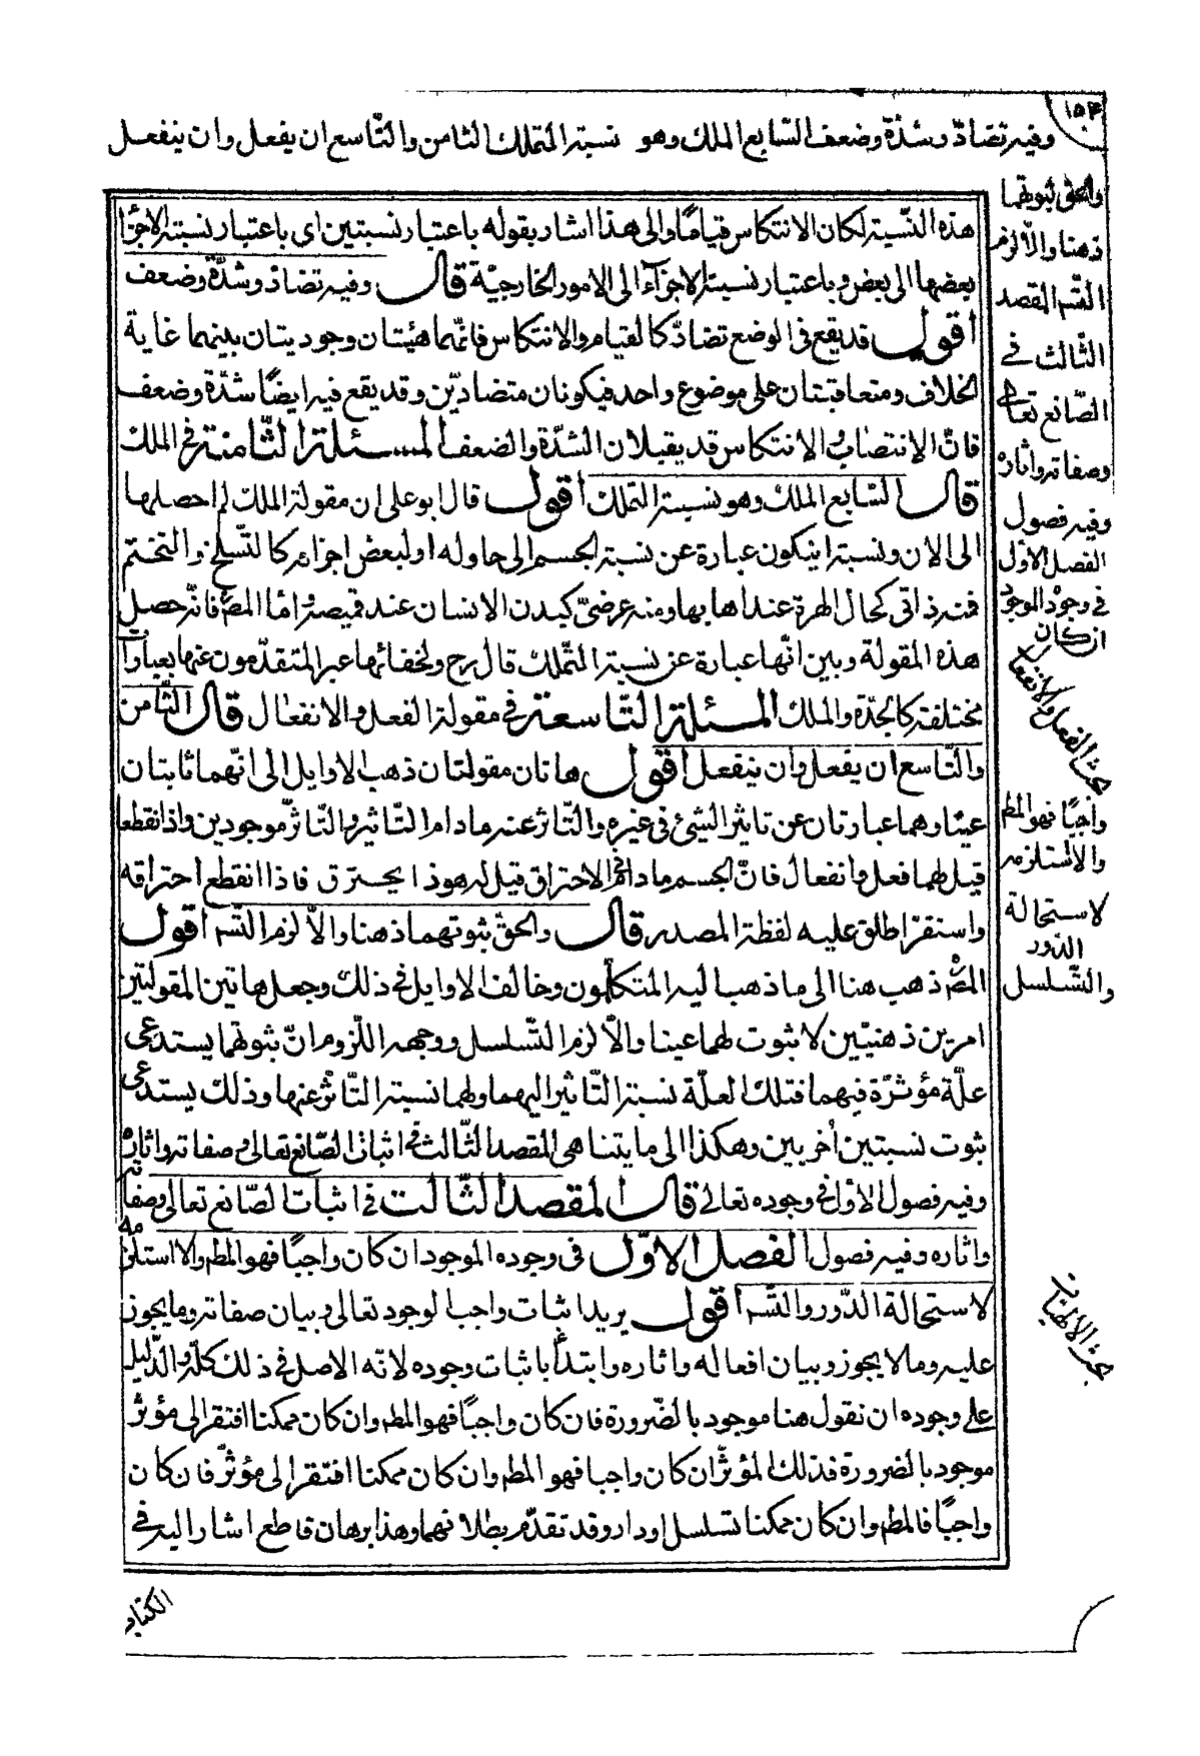 ١٥٣
وفيه تضاد وشدّة وضعف السّابع الملك وهو نسبة التملك الثامن والتّاسع ان يفعل وان ينفعل
هذه النّسبة لكان الانتكاس قيامًا والى هذا اشار بقوله باعتبار نسبتين اى باعتبار نسبة الاجزا
بعضها الى بعض وباعتبار نسبة الاجزآء الى الامور الخارجيّة قال وفيه تضادّ وشدّة وضعف
أقول قد يقع فى الوضع تضادّ كالقيام والانتكاس فانّهما هيئتان وجوديتان بينهما غاية
الخلاف ومتعاقبتان على موضوع واحد فيكونان متضادّين وقد يقع فيه ايضًا شدّة وضعف
فانّ الانتصاب والانتكاس قد يقبلان الشدّة والضعف المسئلة الثّامنة فى الملك
قال السّابع الملك وهو نسبة التملك أقول قال ابو على ان مقولة الملك لم احصلها
الى الان ونسبة ان يكون عبارة عن نسبة الجسم الى حاوله او لبعض اجزائه كالتّسلّح والتختم
فمنه ذاتى كحال الهرة عند اهابها ومنه عرضىّ كبدن الانسان عند قميصه وامّا المص فانّه حصل
هذه المقولة وبين انّها عبارة عن نسبة التّملك قال رح ولخفائها عبر المتقدّمون عنها بعبارات
مختلفة كالجدّة والملك المسئلة التّاسعة فى مقولة الفعل والانفعال قال الثّامن
والتّاسع ان يفعل وان ينفعل أقول هاتان مقولتان ذهب الاوايل الى انّهما ثابتان
عينًا وهما عبارتان عن تاثير الشئ فى غيره والتّاثر عنه مادام التّاثير والتّاثر موجودين واذا نقطعا
قيل لهما فعل وانفعال فانّ الجسم مادام فى الاحتراق قيل له هوذا يحترق فاذا انقطع احتراقه
واستقر اطلق عليه لفظة المصدر قال والحقّ ثبوتهما ذهنا والاّ لزم التّسلسل أقول
المص ذهب هنا الى ما ذهب اليه المتكلّمون وخالف الاوايل فى ذلك وجعل هاتين المقولتين
امرين ذهنيّين لا ثبوت لهما عينا والاّ لزم التّسلسل ووجه اللّزوم انّ ثبوتهما يستدعى
علّة مؤثّرة فيهما فتلك العلّة نسبة التّاثير اليهما ولهما نسبة التّاثر عنها وذلك يستدعى
ثبوت نسبتين أخريين وهكذا الى ما يتناهى المقصد الثّالث فى اثبات الصّانع تعالى وصفاته واثاره
وفيه فصول الاوّل فى وجوده تعالى قال المقصد الثّالث فى اثبات الصّانع تعالى وصفاته
واثاره وفيه فصول الفصل الاوّل فى وجوده الموجود ان كان واجبًا فهو المط والا استلزمه
لاستحالة الدّور والتّسلسل أقول يريد اثبات واجب الوجود تعالى وبيان صفاته وما يجوز
عليه وما لا يجوز وبيان افعاله واثاره وابتدأ باثبات وجوده لانّه الاصل فى ذلك كلّه والدّليل
على وجوده ان نقول هنا موجود بالضّرورة فان كان واجبًا فهو المط وان كان ممكنا افتقر الى مؤثّر
موجود بالضرورة فذلك المؤثّر ان كان واجبا فهو المط وان كان ممكنا افتقر الى مؤثّر فان كان
واجبًا فالمط وان كان ممكنا تسلسل او دار وقد تقدّم بطلانهما وهذا برهان قاطع اشار اليه فى
الكتاب
والحق ثبوتهما
ذهنا والاّ لزم
التّسلسل المقصد
الثّالث فى
الصّانع تعالى
وصفاته واثاره
وفيه فصول
الفصل الاوّل
فى وجوده الموجود
ان كان
واجبًا فهو المط
والاّ استلزمه
لاستحالة
الدّور
والتّسلسل
بحث الفعل والانفعال
بحث الالهيّات